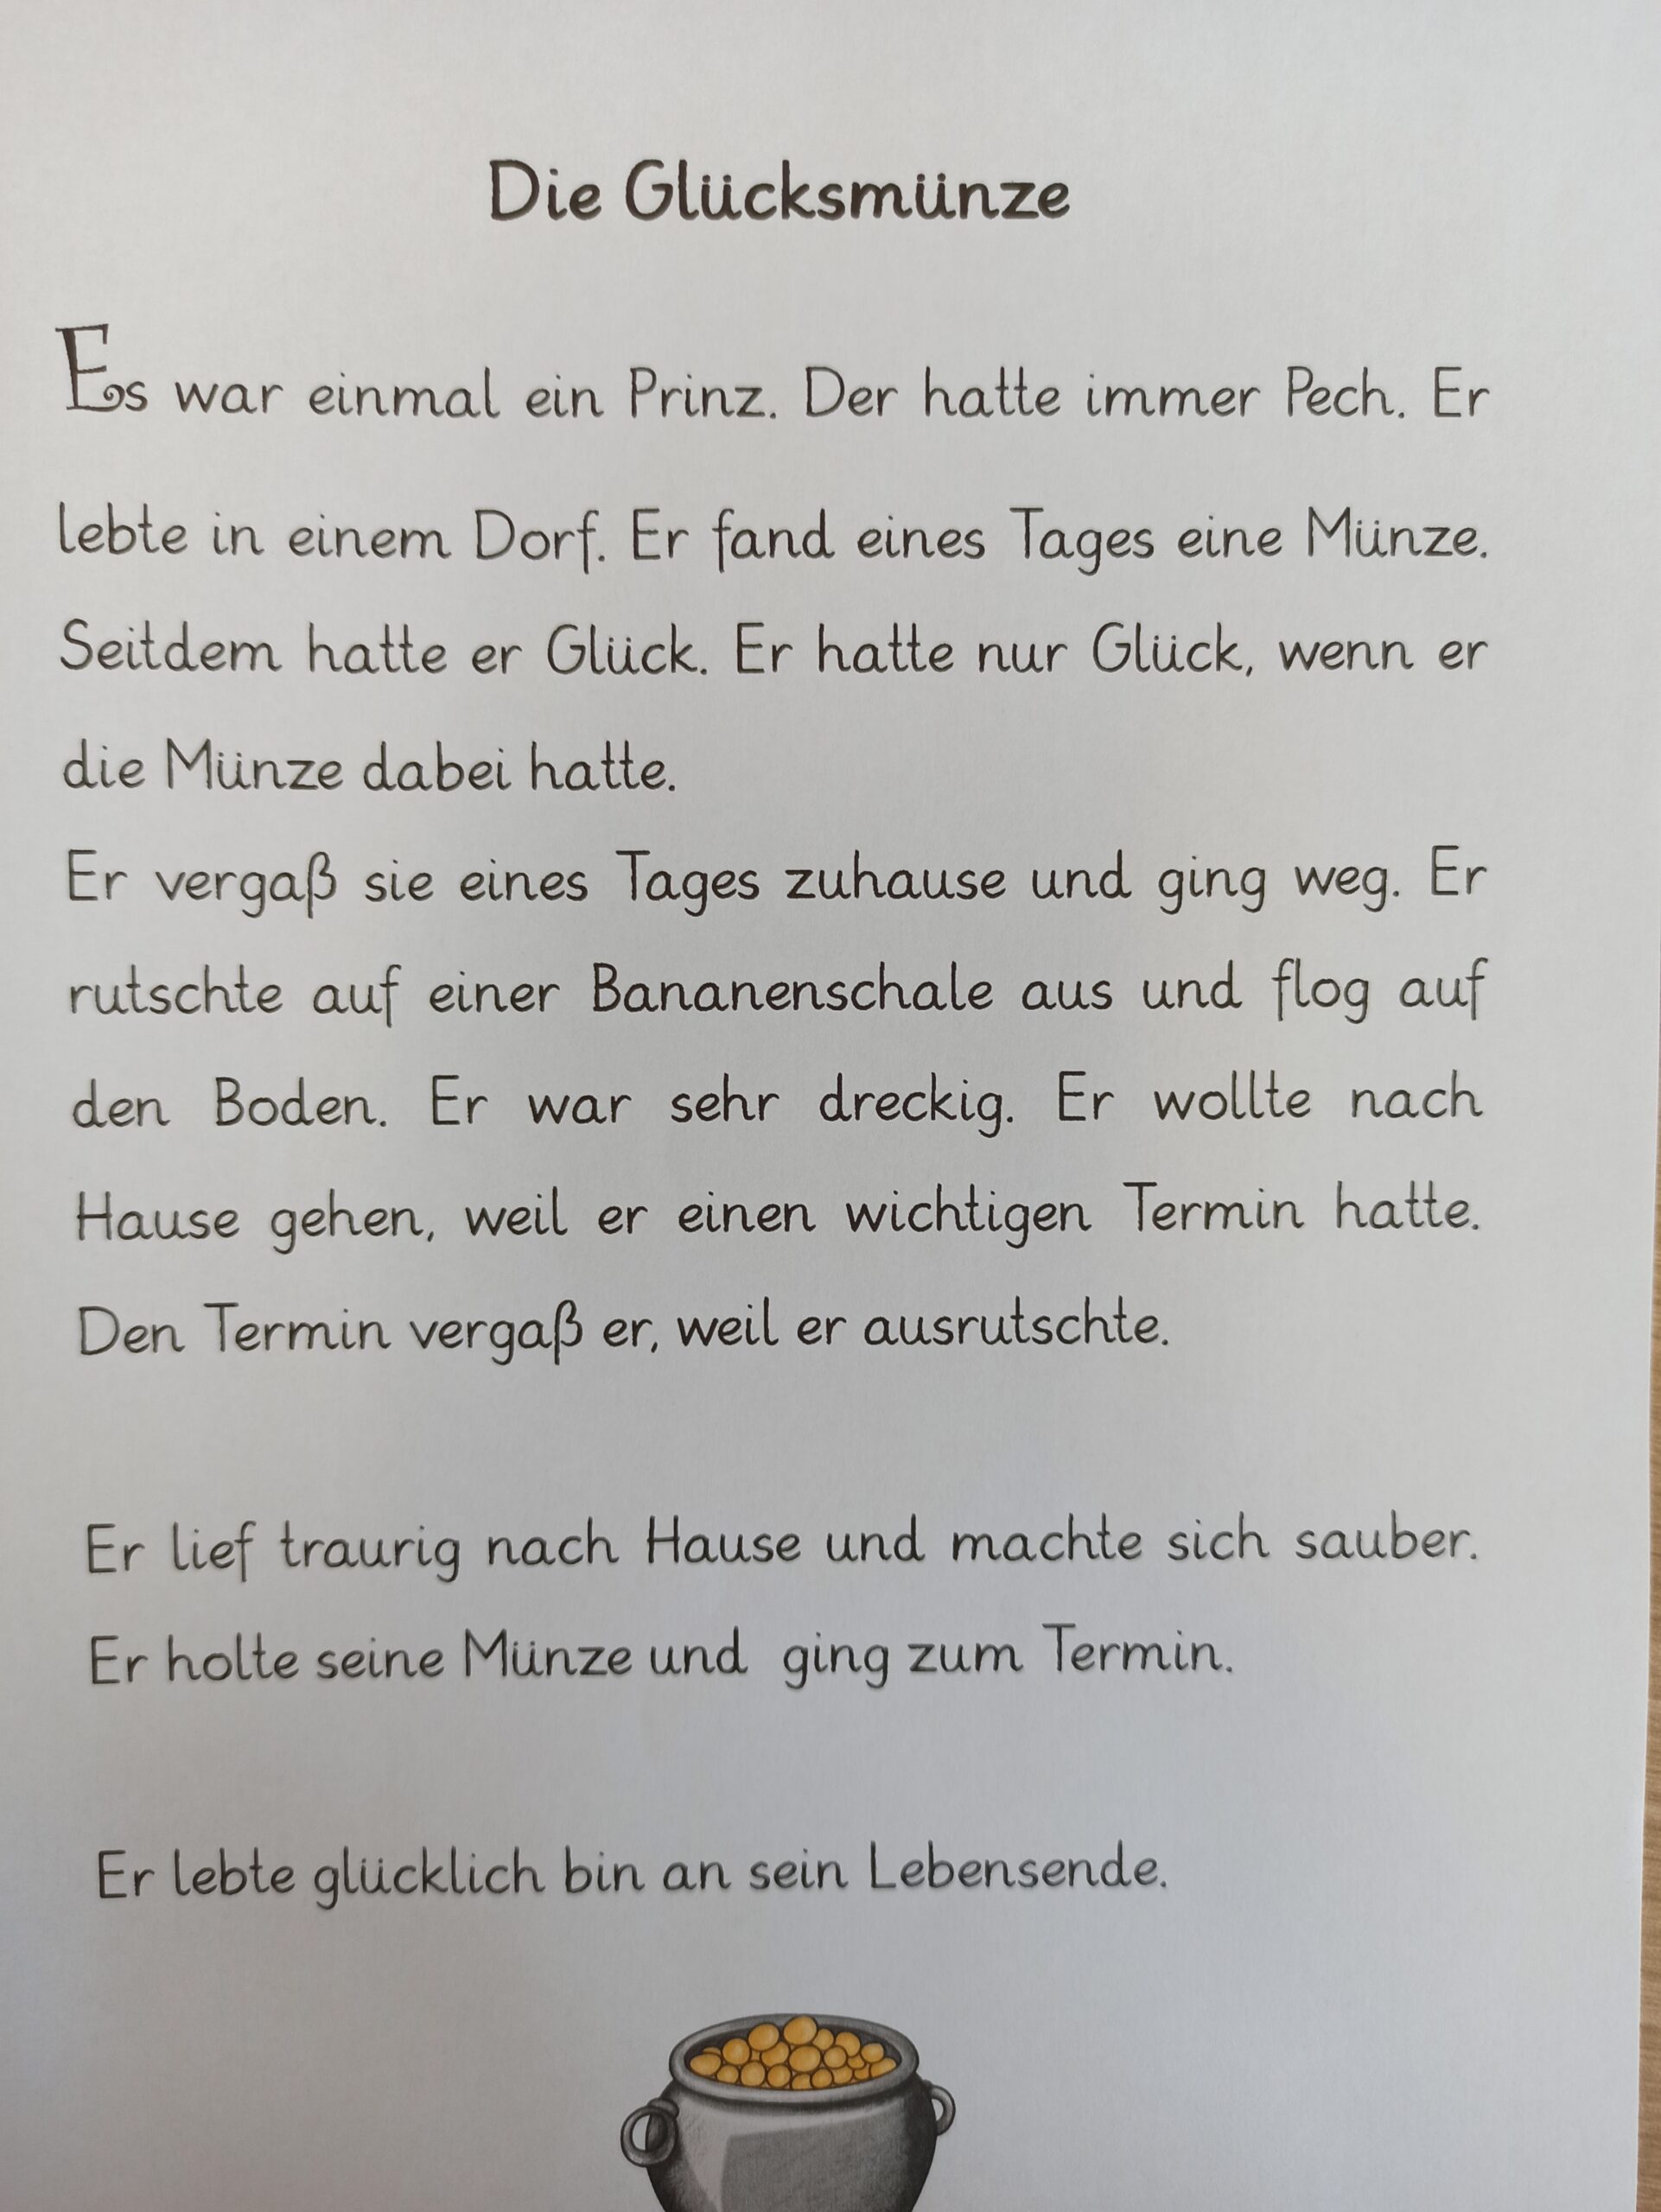 Die Glücksmünze
Es war einmal ein Prinz. Der hatte immer Pech. Er
lebte in einem Dorf. Er fand eines Tages eine Münze.
Seitdem hatte er Glück. Er hatte nur Glück, wenn er
die Münze dabei hatte.
Er vergaß sie eines Tages zuhause und ging weg. Er
rutschte auf einer Bananenschale aus und flog auf
den Boden. Er war sehr dreckig. Er wollte nach
Hause gehen, weil er einen wichtigen Termin hatte.
Den Termin vergaß er, weil er ausrutschte.
Er lief traurig nach Hause und machte sich sauber.
Er holte seine Münze und ging zum Termin.
Er lebte glücklich bin an sein Lebensende.